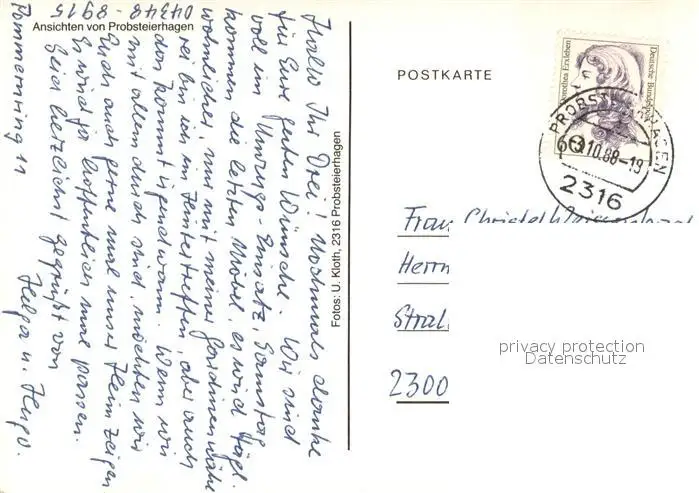 04348 - 8915
Ansichten von Probsteierhagen
Hallo Ihr Drei! Nochmals danke
für Eure guten Wünsche. Wir sind
voll im Umzugs-Einsatz, Samstag
kommen die letzten Möbel. es wird tägl.
wohnlicher, nur mit meiner Gardinennäherei
bin ich im Hintertreffen, aber auch
das kommt irgendwann. Wenn wir
mit allem durch sind, möchten wir
Euch auch gerne mal unser Heim zeigen
Es wird ja hoffentlich mal passen.
Seid herzlichst gegrüßt von
Helga u. Hugo.
Pommernring 11
Fotos: U. Kloth, 2316 Probsteierhagen
POSTKARTE
Dorothea Erxleben
Deutsche Bundespost
60
PROBSTEIERHAGEN
10.88-19
2316
Frau Christel
Herrn
Straß
2300
privacy protection
Datenschutz